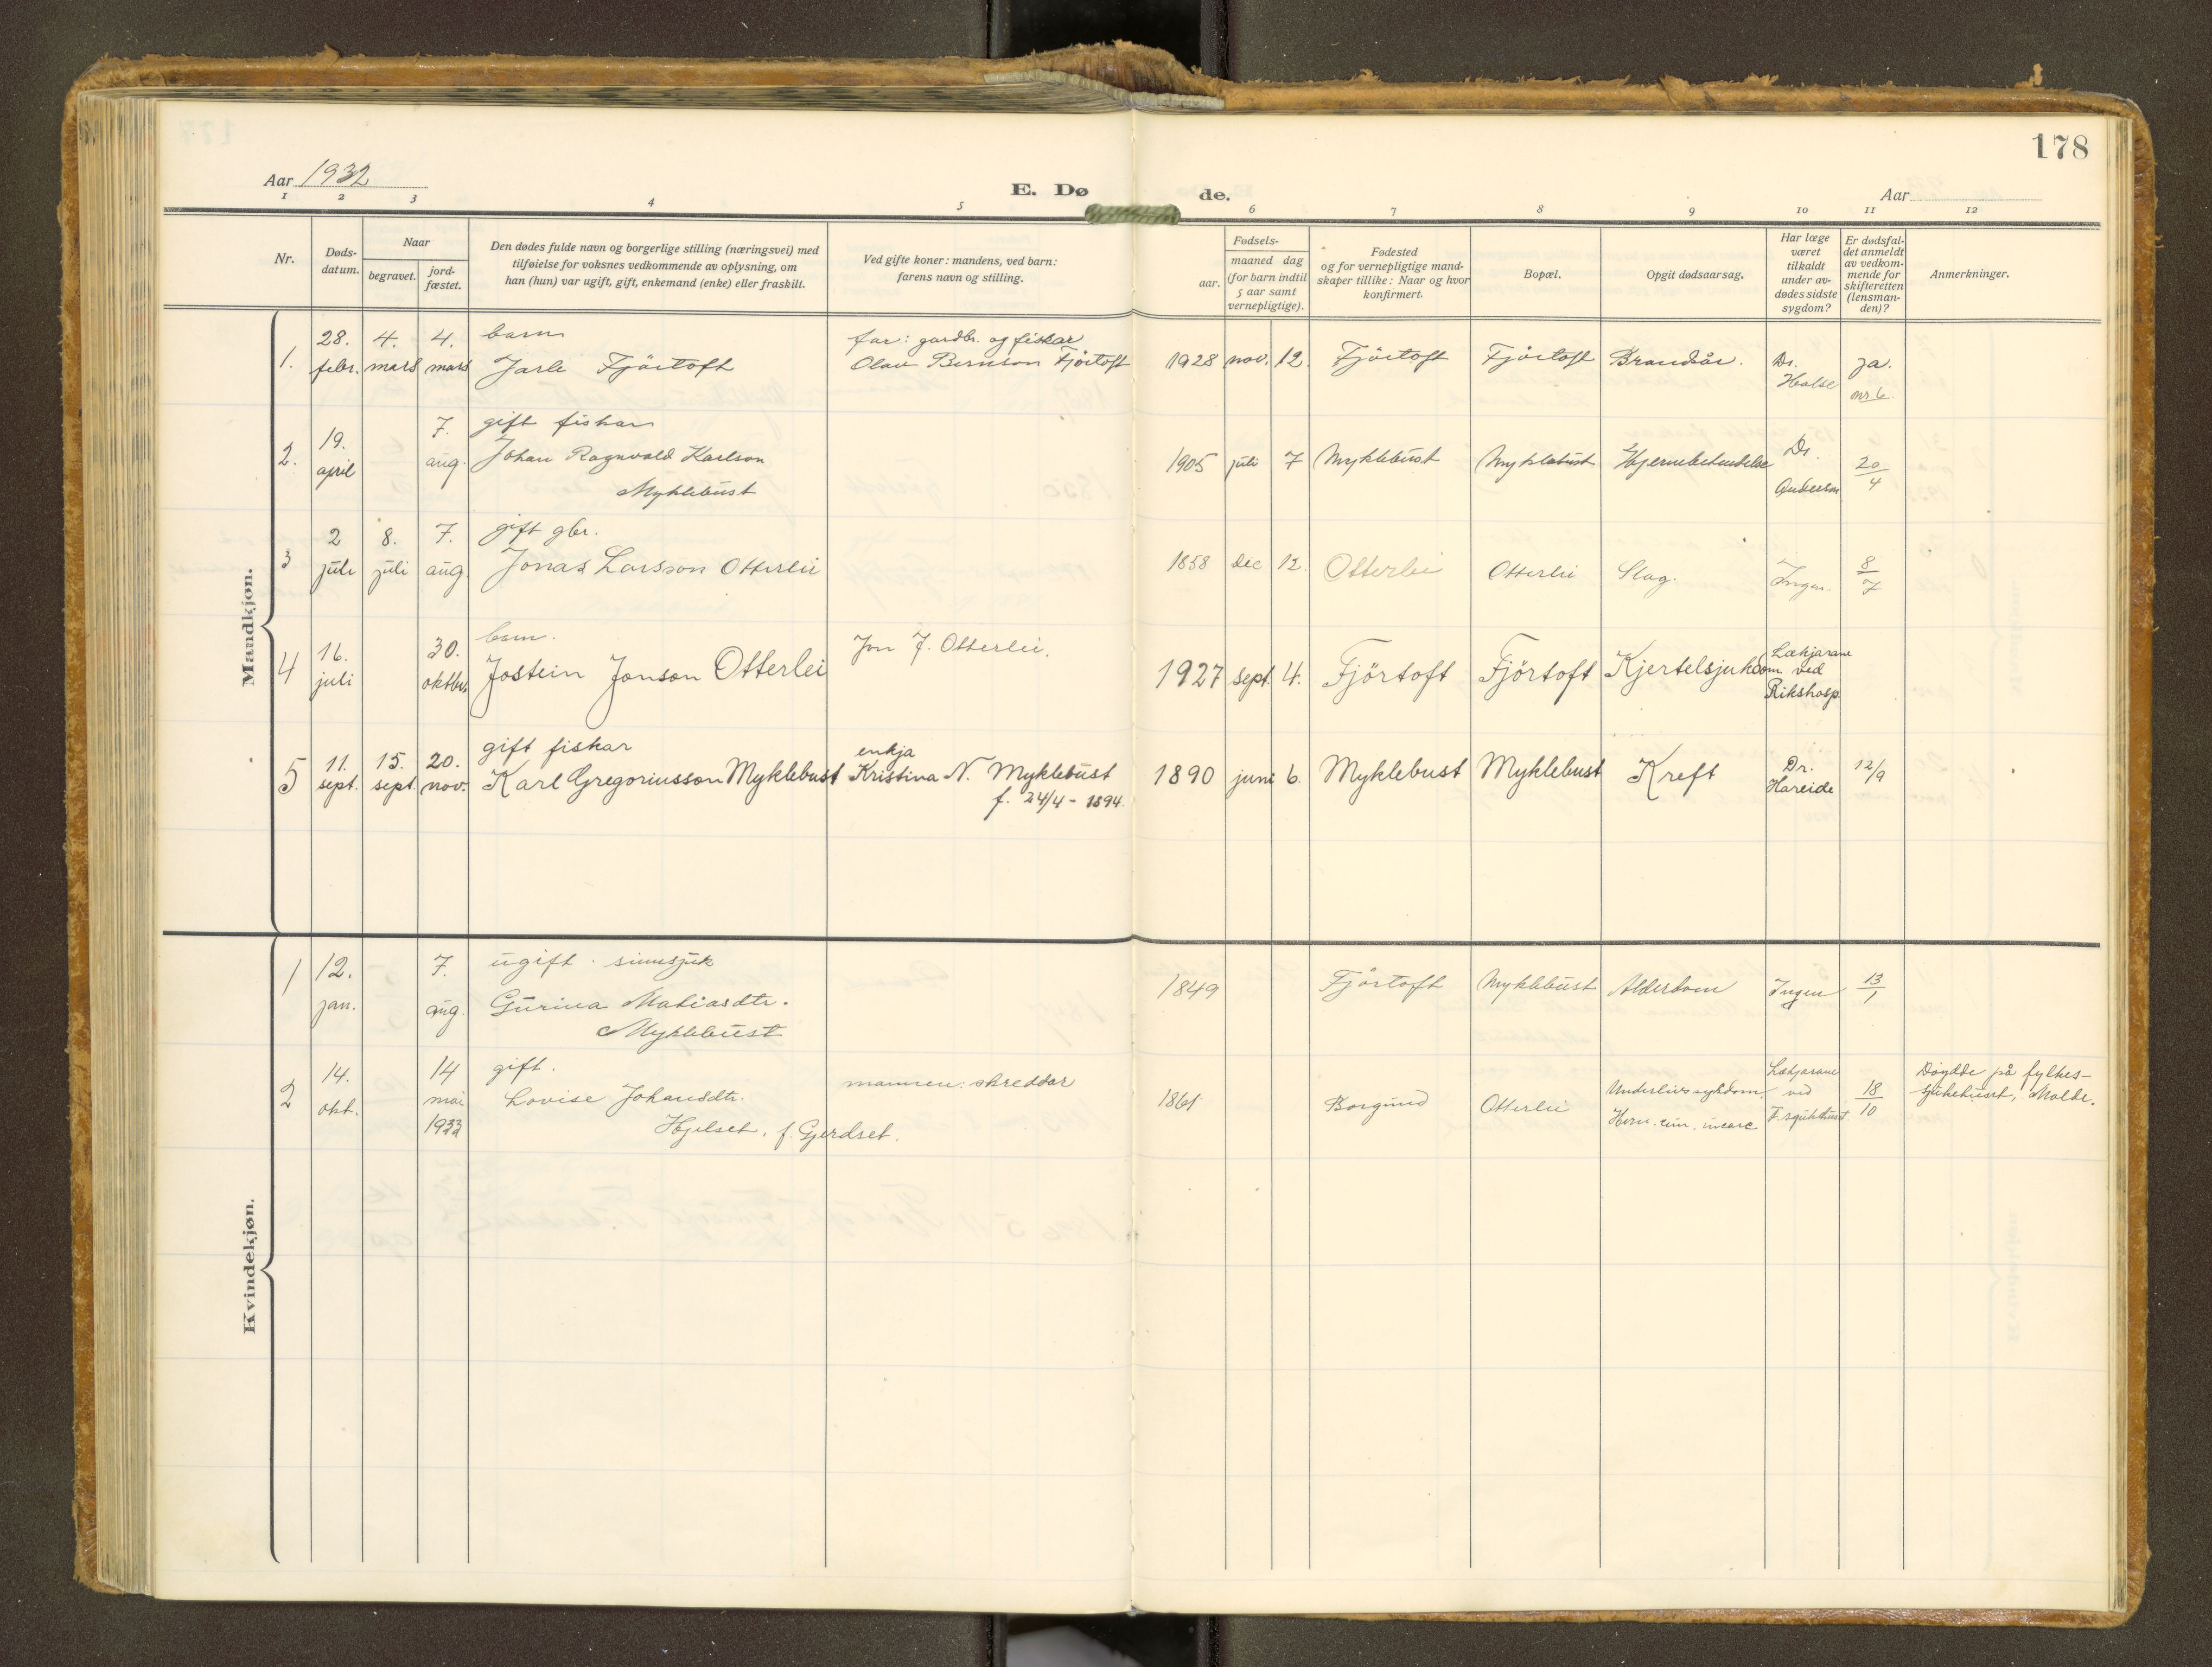 178
Aar 1932
E. Dø
de.
Aar
1 2 3 4 5 6 7 8 9 10 11 12
Nr.
Døds-
datum.
Naar
begravet.
jord-
fæstet.
Den dødes fulde navn og borgerlige stilling (næringsvei) med
tilføielse for voksnes vedkommende av oplysning, om
han (hun) var ugift, gift, enkemand (enke) eller fraskilt.
Ved gifte koner: mandens, ved barn:
farens navn og stilling.
Fødsels-
aar.
maaned dag
(for barn indtil
5 aar samt
vernepligtige).
Fødested
og for vernepligtige mand-
skaper tillike: Naar og hvor
konfirmert.
Bopæl.
Opgit dødsaarsag.
Har læge
været
tilkaldt
under av-
dødes sidste
sygdom?
Er dødsfal-
det anmeldt
av vedkom-
mende for
skifteretten
(lensman-
den)?
Anmerkninger.
Mandkjøn.
1.
28.
febr.
4.
mars
4.
mars
barn
Jarle Fjörtoft
far: gardbr. og fiskar
Olav Bernson Fjörtoft
1928 nov. 12.
Fjörtoft
Fjörtoft
Brandsår.
Dr.
Halse
ja.
nr. 6.
2.
19.
april
7.
aug.
gift fiskar
Johan Ragnvald Karlson
Myklebust
1905 juli 7
Myklebust
Myklebust
Hjernebetendelse
Dr.
Anderson
20/4
3
2
juli
8.
juli
7.
aug.
gift gbr.
Jonas Larsson Otterlei
1858 dec 12.
Otterlei
Otterlei
Slag.
Ingen.
8/7
4
16.
juli
30.
oktbr.
barn.
Jostein Jonson Otterlei
Jon J. Otterlei.
1927 sept. 4.
Fjörtoft
Fjörtoft
Kjertelsjukdom.
Lækjarane
ved
Rikshosp.
5
11.
sept.
15.
sept.
20.
nov.
gift fiskar
Karl Gregoriusson Myklebust
enkja
Kristina N. Myklebust
f. 24/4 - 1894.
1890 juni 6.
Myklebust
Myklebust
Kreft
Dr.
Hareide
12/9
Kvindekjøn.
1
12.
jan.
7.
aug.
ugift. sinnsjuk
Gurina Matiasdtr.
Myklebust
1849
Fjörtoft
Myklebust
Alderdom
Ingen
13/1
2
14.
okt.
14
mai
1933
gift.
Lovise Johansdtr.
Hjelset, f. Gjerdset.
mannen: skreddar
1861
Borgund
Otterlei
Underlivssykdom.
Hern.
Lækjarane
ved
F. sjukehuset.
18/10
Döydde på fylkes-
sjukehuset, Molde.